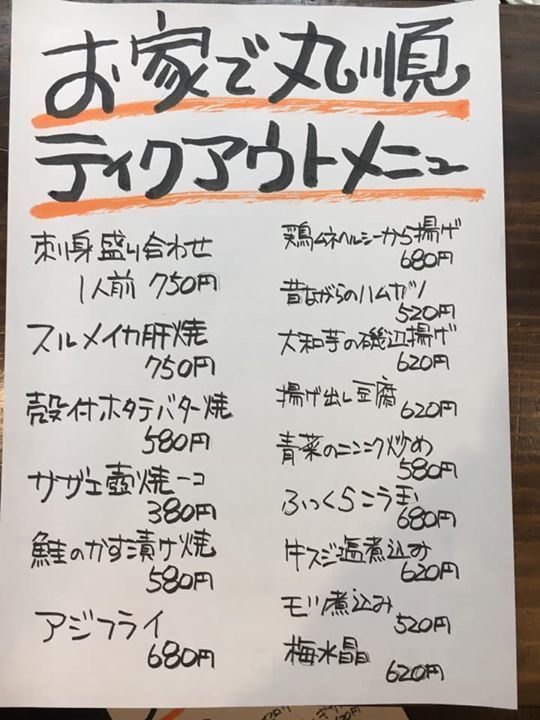 お家で丸順
テイクアウトメニュー
刺身盛り合わせ
1人前 750円
スルメイカ肝焼
750円
殻付ホタテバター焼
580円
サザエ壺焼一コ
380円
鮭のかす漬け焼
580円
アジフライ
680円
鶏ムネヘルシーから揚げ
680円
昔ながらのハムカツ
520円
大和芋の磯辺揚げ
620円
揚げ出し豆腐
620円
青菜のニンニク炒め
580円
ふっくらニラ玉
680円
牛スジ塩煮込み
620円
モツ煮込み
520円
梅水晶
620円